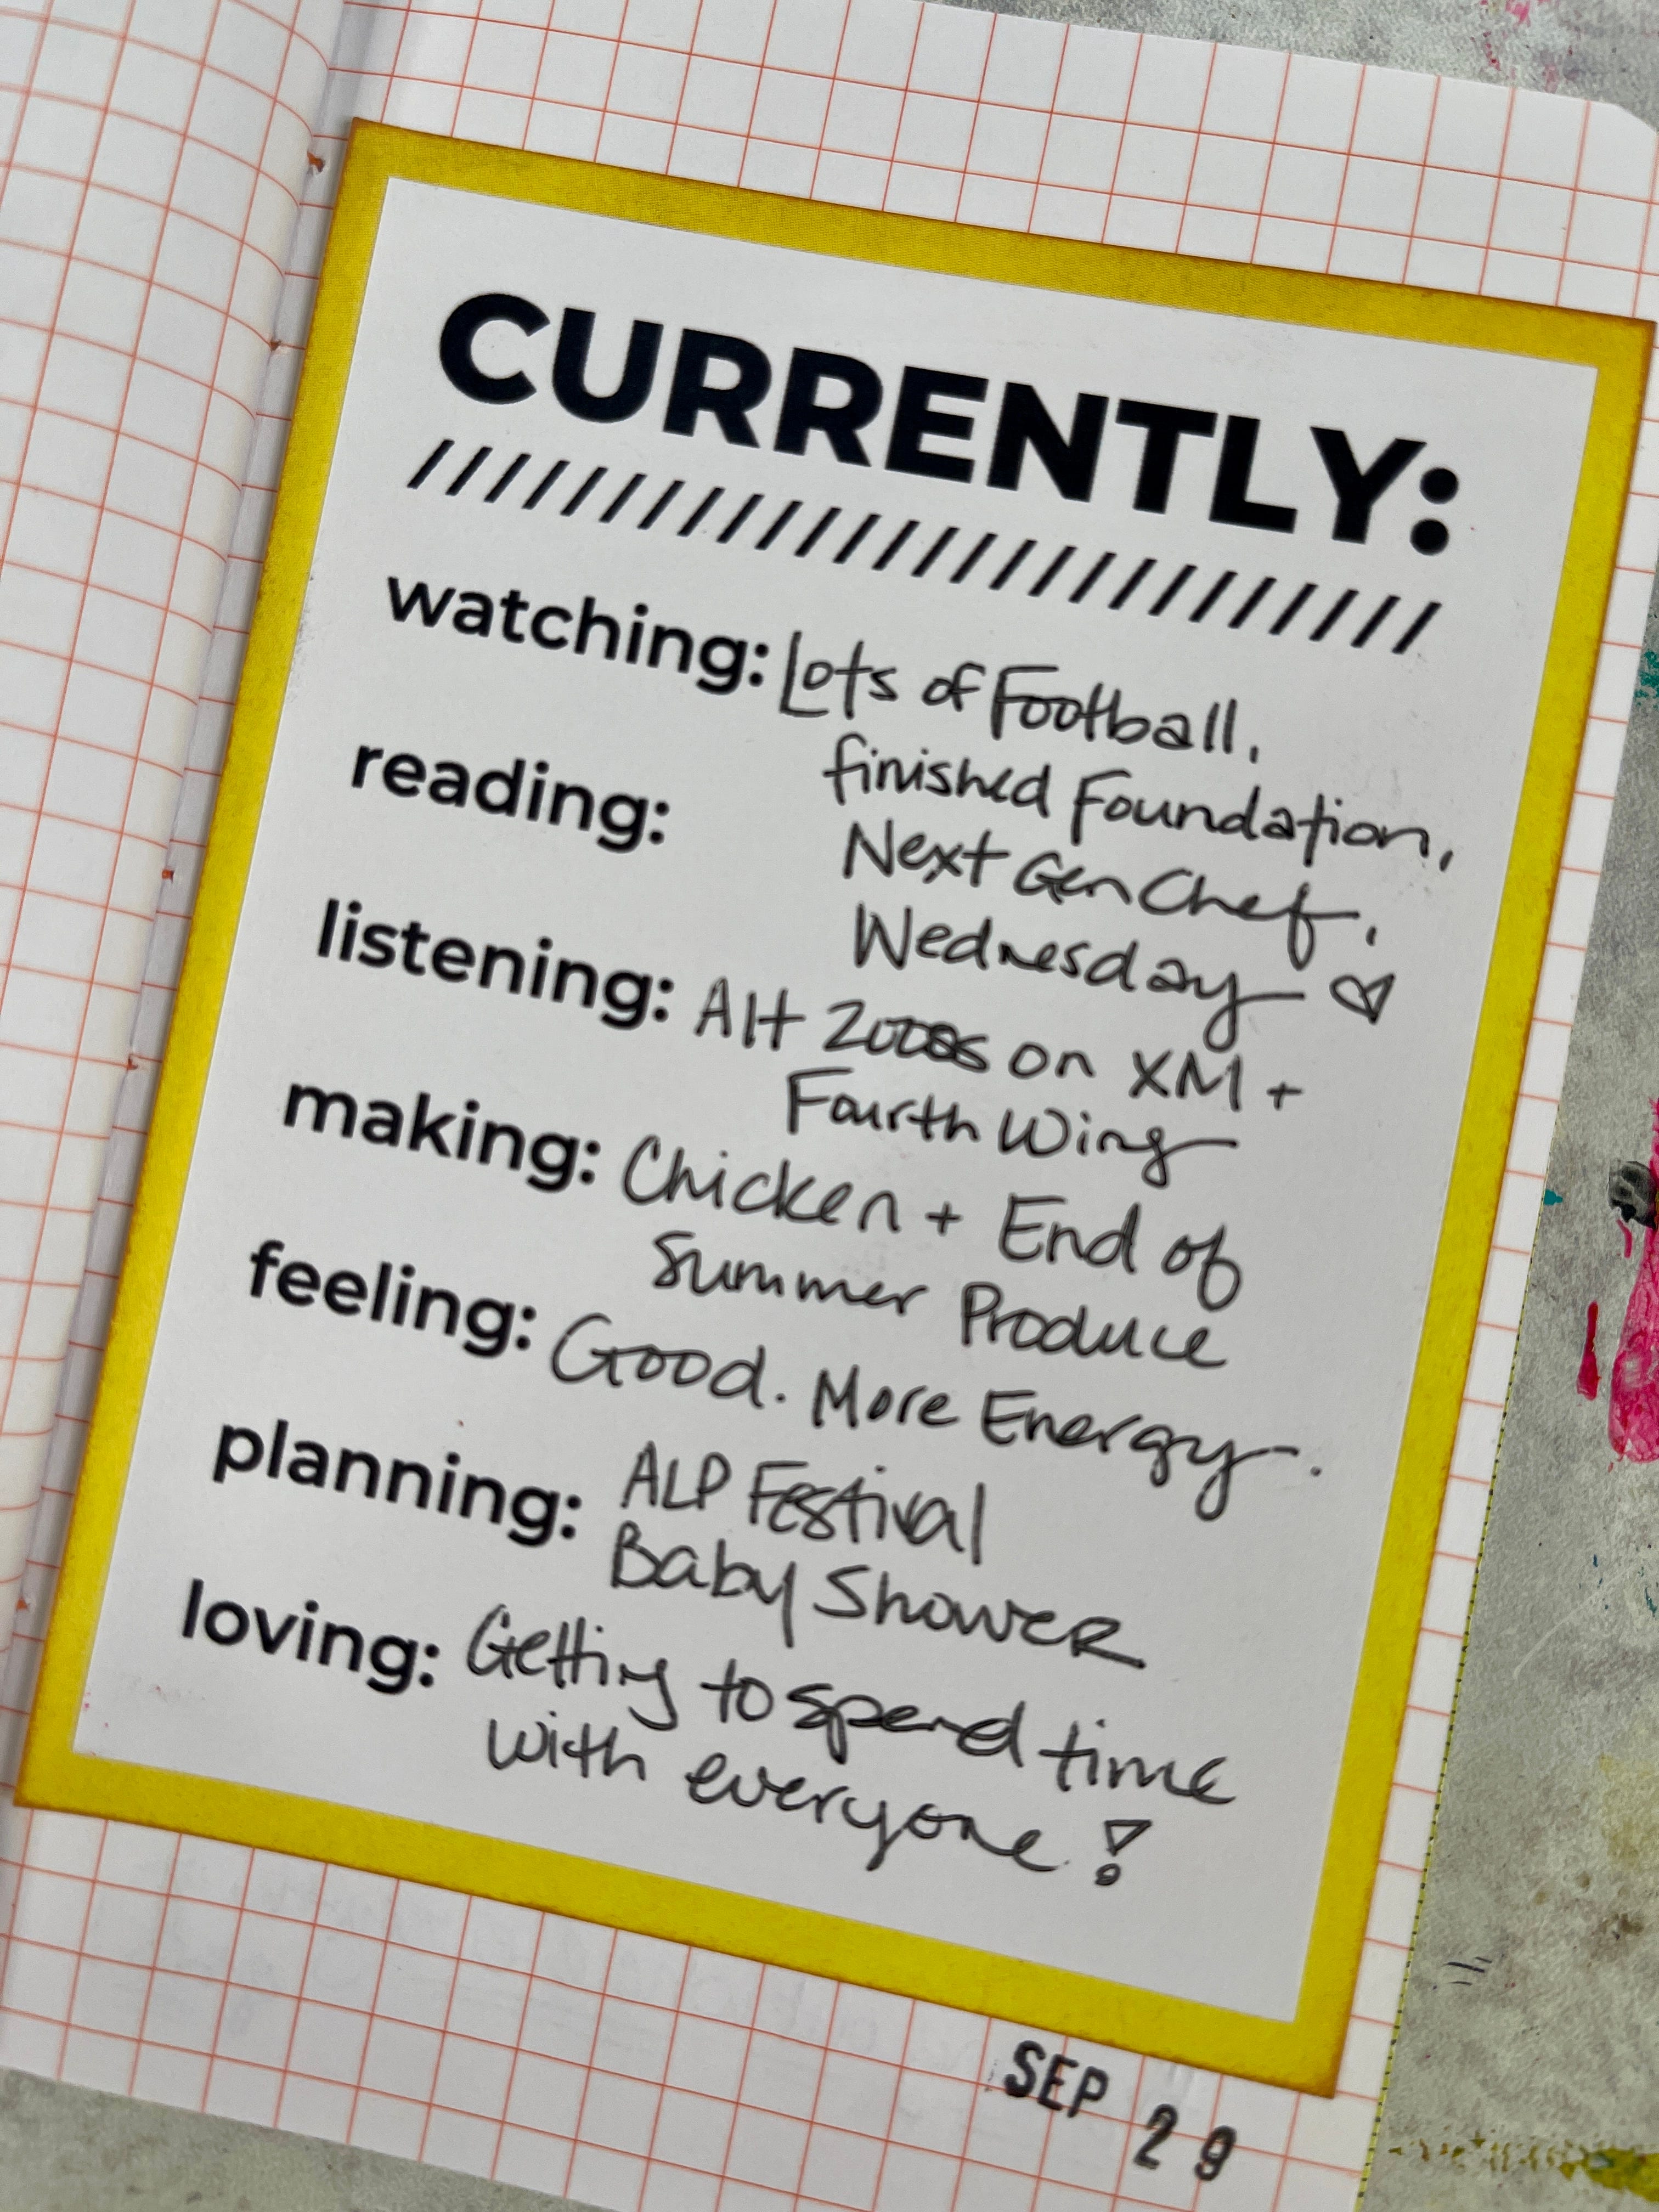 CURRENTLY:
watching: Lots of Football,
finished Foundation,
reading:
Next Gen Chef,
Wednesday ♡
listening: Alt 2000s on XM +
Fourth Wing
making: Chicken + End of
Summer Produce
feeling: Good. More Energy.
planning: ALP Festival
Baby Shower
loving: Getting to spend time
with everyone!
SEP 29